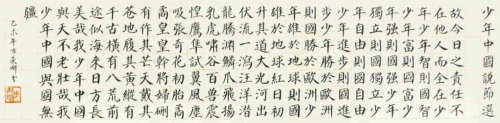 少年中國說節選
故今日之責任不
在他人而全在少
年少年智則國智
少年富則國富少
年強則國強少年
獨立則國獨立少
年自由則國自由
少年進步則國進
步少年勝於歐洲
則國勝於歐洲少
年雄於地球則國
雄於地球紅日初
升其道大光河出
伏流一瀉汪洋潛
龍騰淵鱗爪飛揚
乳虎嘯谷百獸震
惶鷹隼試翼風塵
吸張奇花初胎矞
矞皇皇幹將發硎
有作其芒天戴其
蒼地履其黃縱有
千古橫有八荒前
途似海來日方長
美哉我少年中國
與天不老壯哉我
少年中國與國無
疆
乙未年方英書